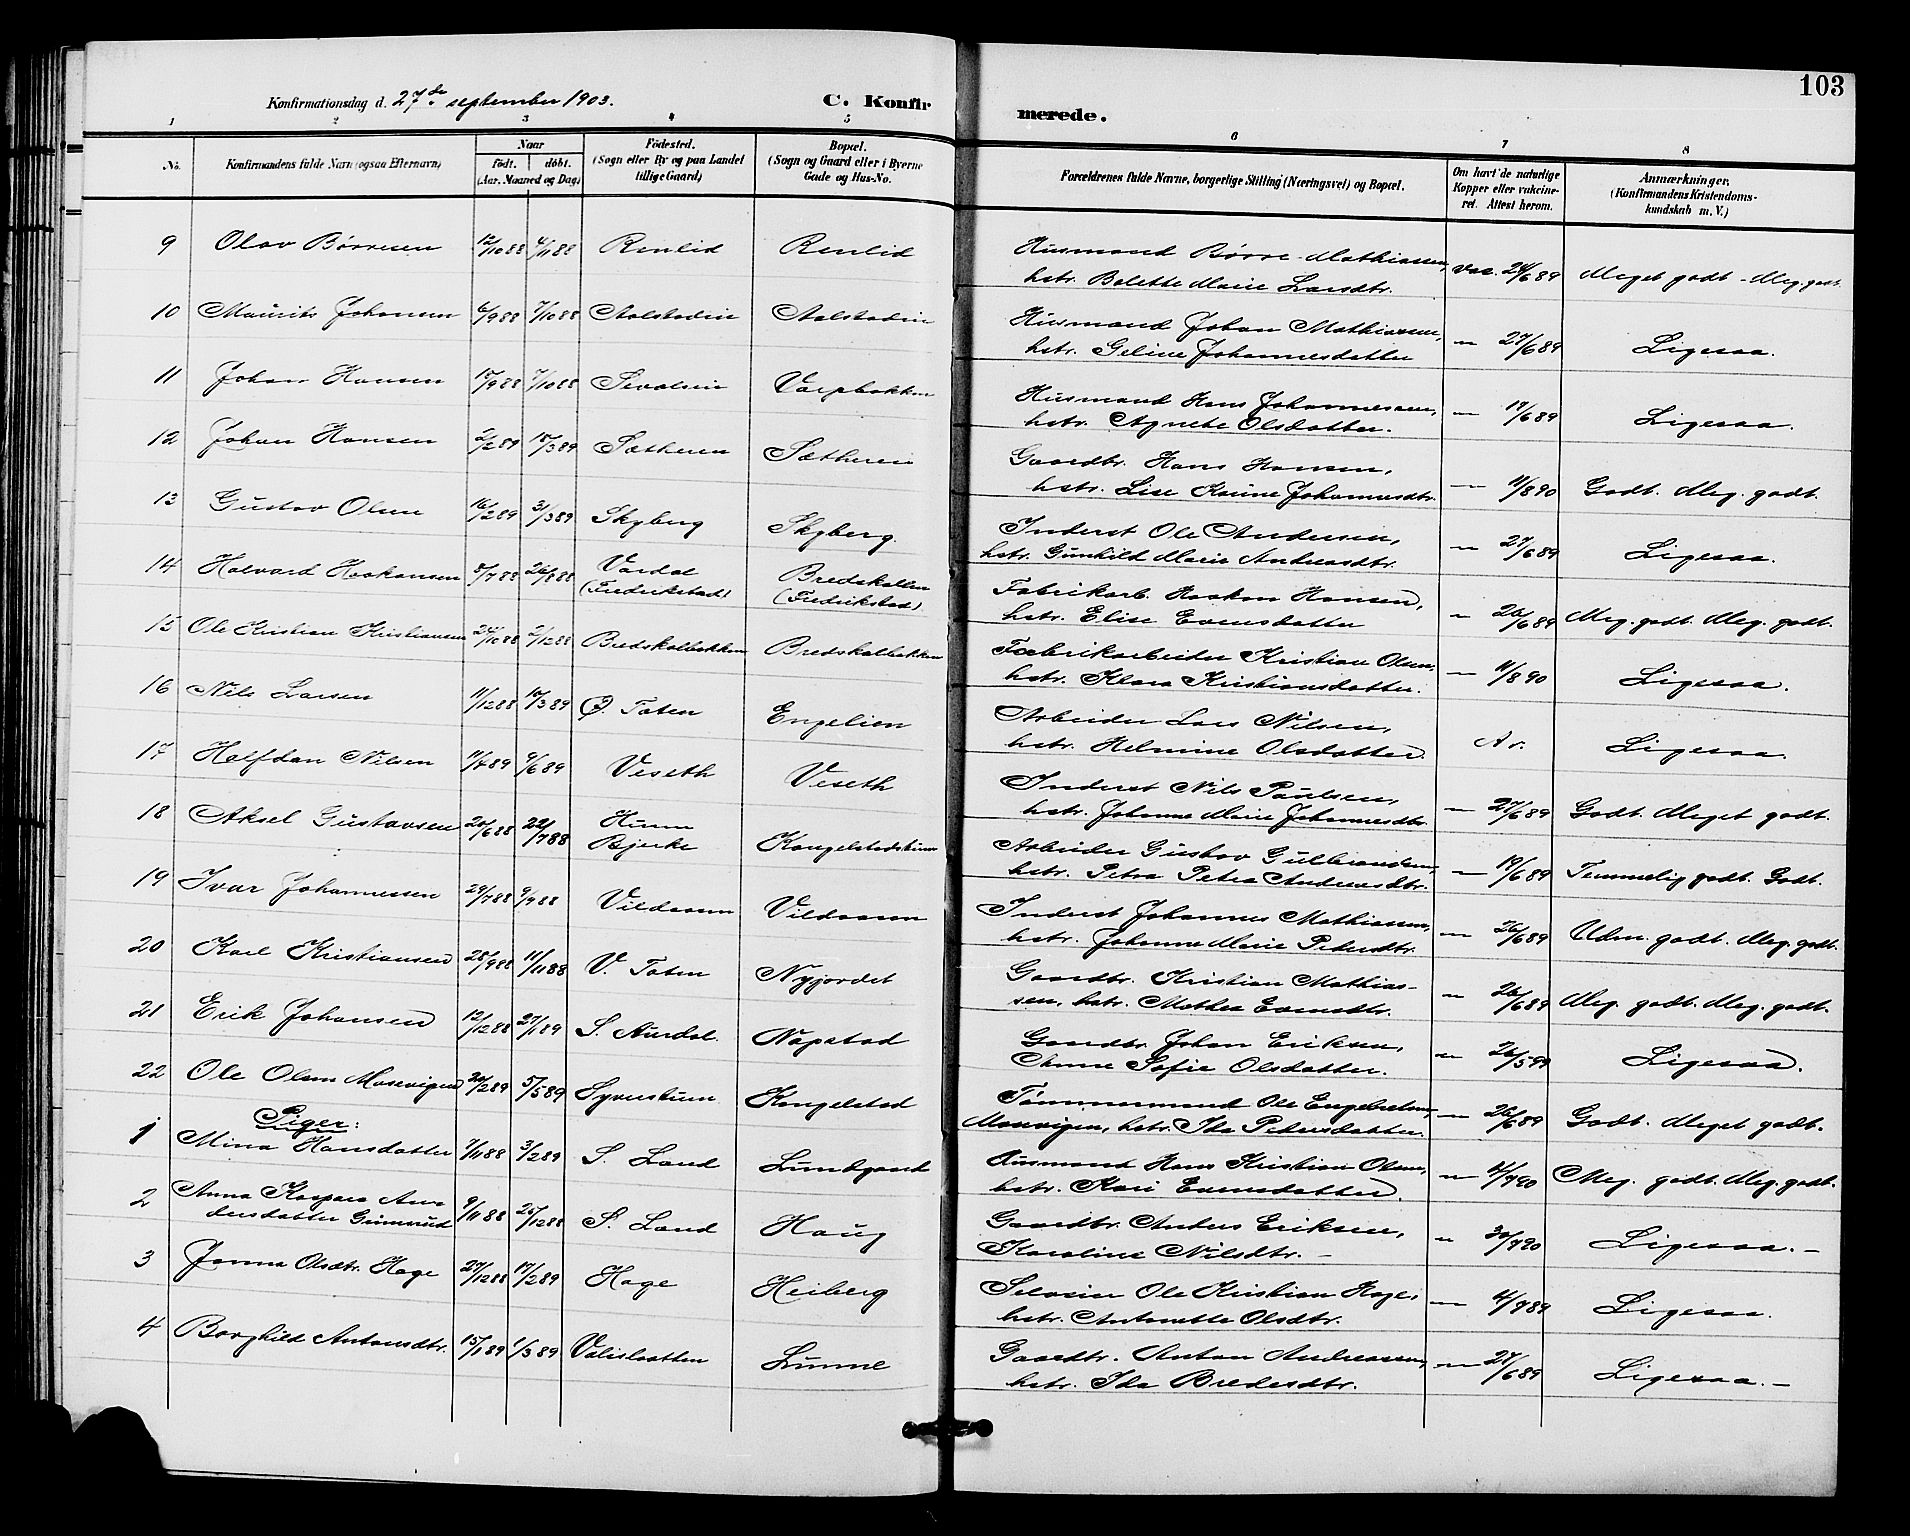 103
Konfirmationsdag d. 27de september 1903. C. Konfirmerede.
1 2 3 4 5 6 7 8
No. Konfirmandens fulde Navn (ogsaa Efternavn) Naar født. døbt. (Aar, Maaned og Dag) Fødested. (Sogn eller By og paa Landet tillige Gaard) Bopæl. (Sogn og Gaard eller i Byerne Gade og Hus-No. Forældrenes fulde Navne, borgerlige Stilling (Næringsvei) og Bopæl. Om havt de naturlige Kopper eller vakcineret. Attest herom. Anmærkninger. (Konfirmandens Kristendomskundskab m. V.)
9 Olav Børresen 12/10 88 4/11 88 Renlid Renlid Husmand Børre Mathiassen, vac. 24/6 89 Meget godt - Meg. godt.
hstr. Bolette Marie Larsdtr.
10 Maurits Johansen 6/9 88 7/10 88 Aalstadeie Aalstadeie Husmand Johan Mathiassen, — 27/6 89 Ligesaa.
hstr. Geline Johannesdatter
11 Johan Hansen 15/9 88 7/10 88 Sevaleie Varpbakken Husmand Hans Johannessen, — 19/6 89 Ligesaa.
hstr. Agnete Olsdatter.
12 Johan Hansen 2/2 89 10/3 89 Sætheren Sætheren Gaardbr. Hans Hansen, — 11/8 90 Godt. Meg. godt.
hstr. Lise Karine Johannesdtr.
13 Gustav Olsen 16/2 89 31/3 89 Skyberg Skyberg. Inderst Ole Andersen, — 27/6 89 Ligesaa.
hstr. Gunhild Marie Andreasdtr.
14 Halvard Haakonsen 5/7 88 26/8 88 Vardal (Fredrikstad) Bredskallen (Fredrikstad) Fabrikarb. Haakon Hansen, — 26/6 89 Meg. godt. Meg. godt.
hstr. Elise Evensdatter
15 Ole Kristian Kristiansen 24/10 88 2/12 88 Bredskalbakken Bredskalbakken Fabrikarbeider Kristian Olsen, — 11/8 90 Ligesaa.
hstr. Klara Kristiansdatter.
16 Nils Larsen 11/12 88 10/3 89 Ø. Toten Engelien Arbeider Lars Nilsen, Ligesaa.
hstr. Helmine Olsdatter
17 Halfdan Nilsen 11/4 89 9/6 89 Veseth Veseth Inderst Nils Paulsen, — 27/6 89 Godt. Meget godt.
hstr. Johanne Marie Johannesdtr.
18 Aksel Gustavsen 20/6 88 22/7 88 Hunn Bjerke Kongelstadhunn Arbeider Gustav Gulbrandsen, — 19/6 89 Temmelig godt. Godt.
hstr. Petra Petra Andreasdtr.
19 Ivar Johannessen 29/7 88 9/9 88 Vildaasen Vildaasen Inderst Johannes Mathiassen, — 26/6 89 Udm. godt. Meg. godt.
hstr. Johanne Marie Petersdtr.
20 Karl Kristiansen 28/9 88 11/11 88 V. Toten Nyjordet Gaardbr. Kristian Mathias- — 26/6 89 Meg. godt. Meg. godt.
sen, hstr. Mathea Evensdtr.
21 Erik Johansen 12/12 88 27/1 89 S. Aurdal. Napstad Gaardbr. Johan Eriksen, — 26/5 99 Ligesaa.
Anne Sofie Olsdatter.
22 Ole Olsen Mosevigen 20/2 89 5/5 89 Syverstuen Kongelstad Tømmermand Ole Engebretsen — 26/6 89 Godt. Meget godt.
Mosevigen, hstr. Ida Petersdatter.
Piger:
1 Mina Hansdatter 7/11 88 3/2 89 S. Land Lundgaard Husmand Hans Kristian Olsen, — 4/7 90 Meg. godt. Meg. godt.
hstr. Kari Evensdatter.
2 Anna Kaspara Andersdatter Grimsrud 9/11 88 26/12 88 S. Land Haug Gaardbr. Anders Eriksen, — 30/7 90 Ligesaa.—
Karoline Nilsdtr.—
3 Jonna Olsdtr. Hage 27/12 88 17/2 89 Hage Heiberg Selveier Ole Kristian Hage, — 4/7 89 Ligesaa.
hstr. Antonette Olsdtr.
4 Borghild Antonsdtr. 15/1 89 1/3 89 Valislaatten Lunne Gaardbr. Anton Andreassen, — 27/6 89 Ligesaa.—
hstr. Ida Bredesdtr.